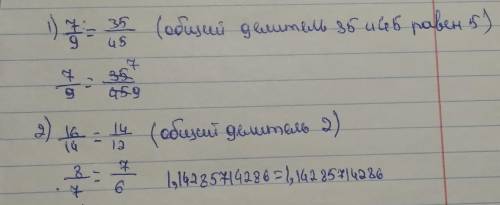 1) 7/9 = 35/45 (общий делитель 35 и 45 равен 5)
7/9 = 35 7/45 9
2) 16/14 = 14/12 (общий делитель 2)
8/7 = 7/6 1,14285714286=1,14285714286